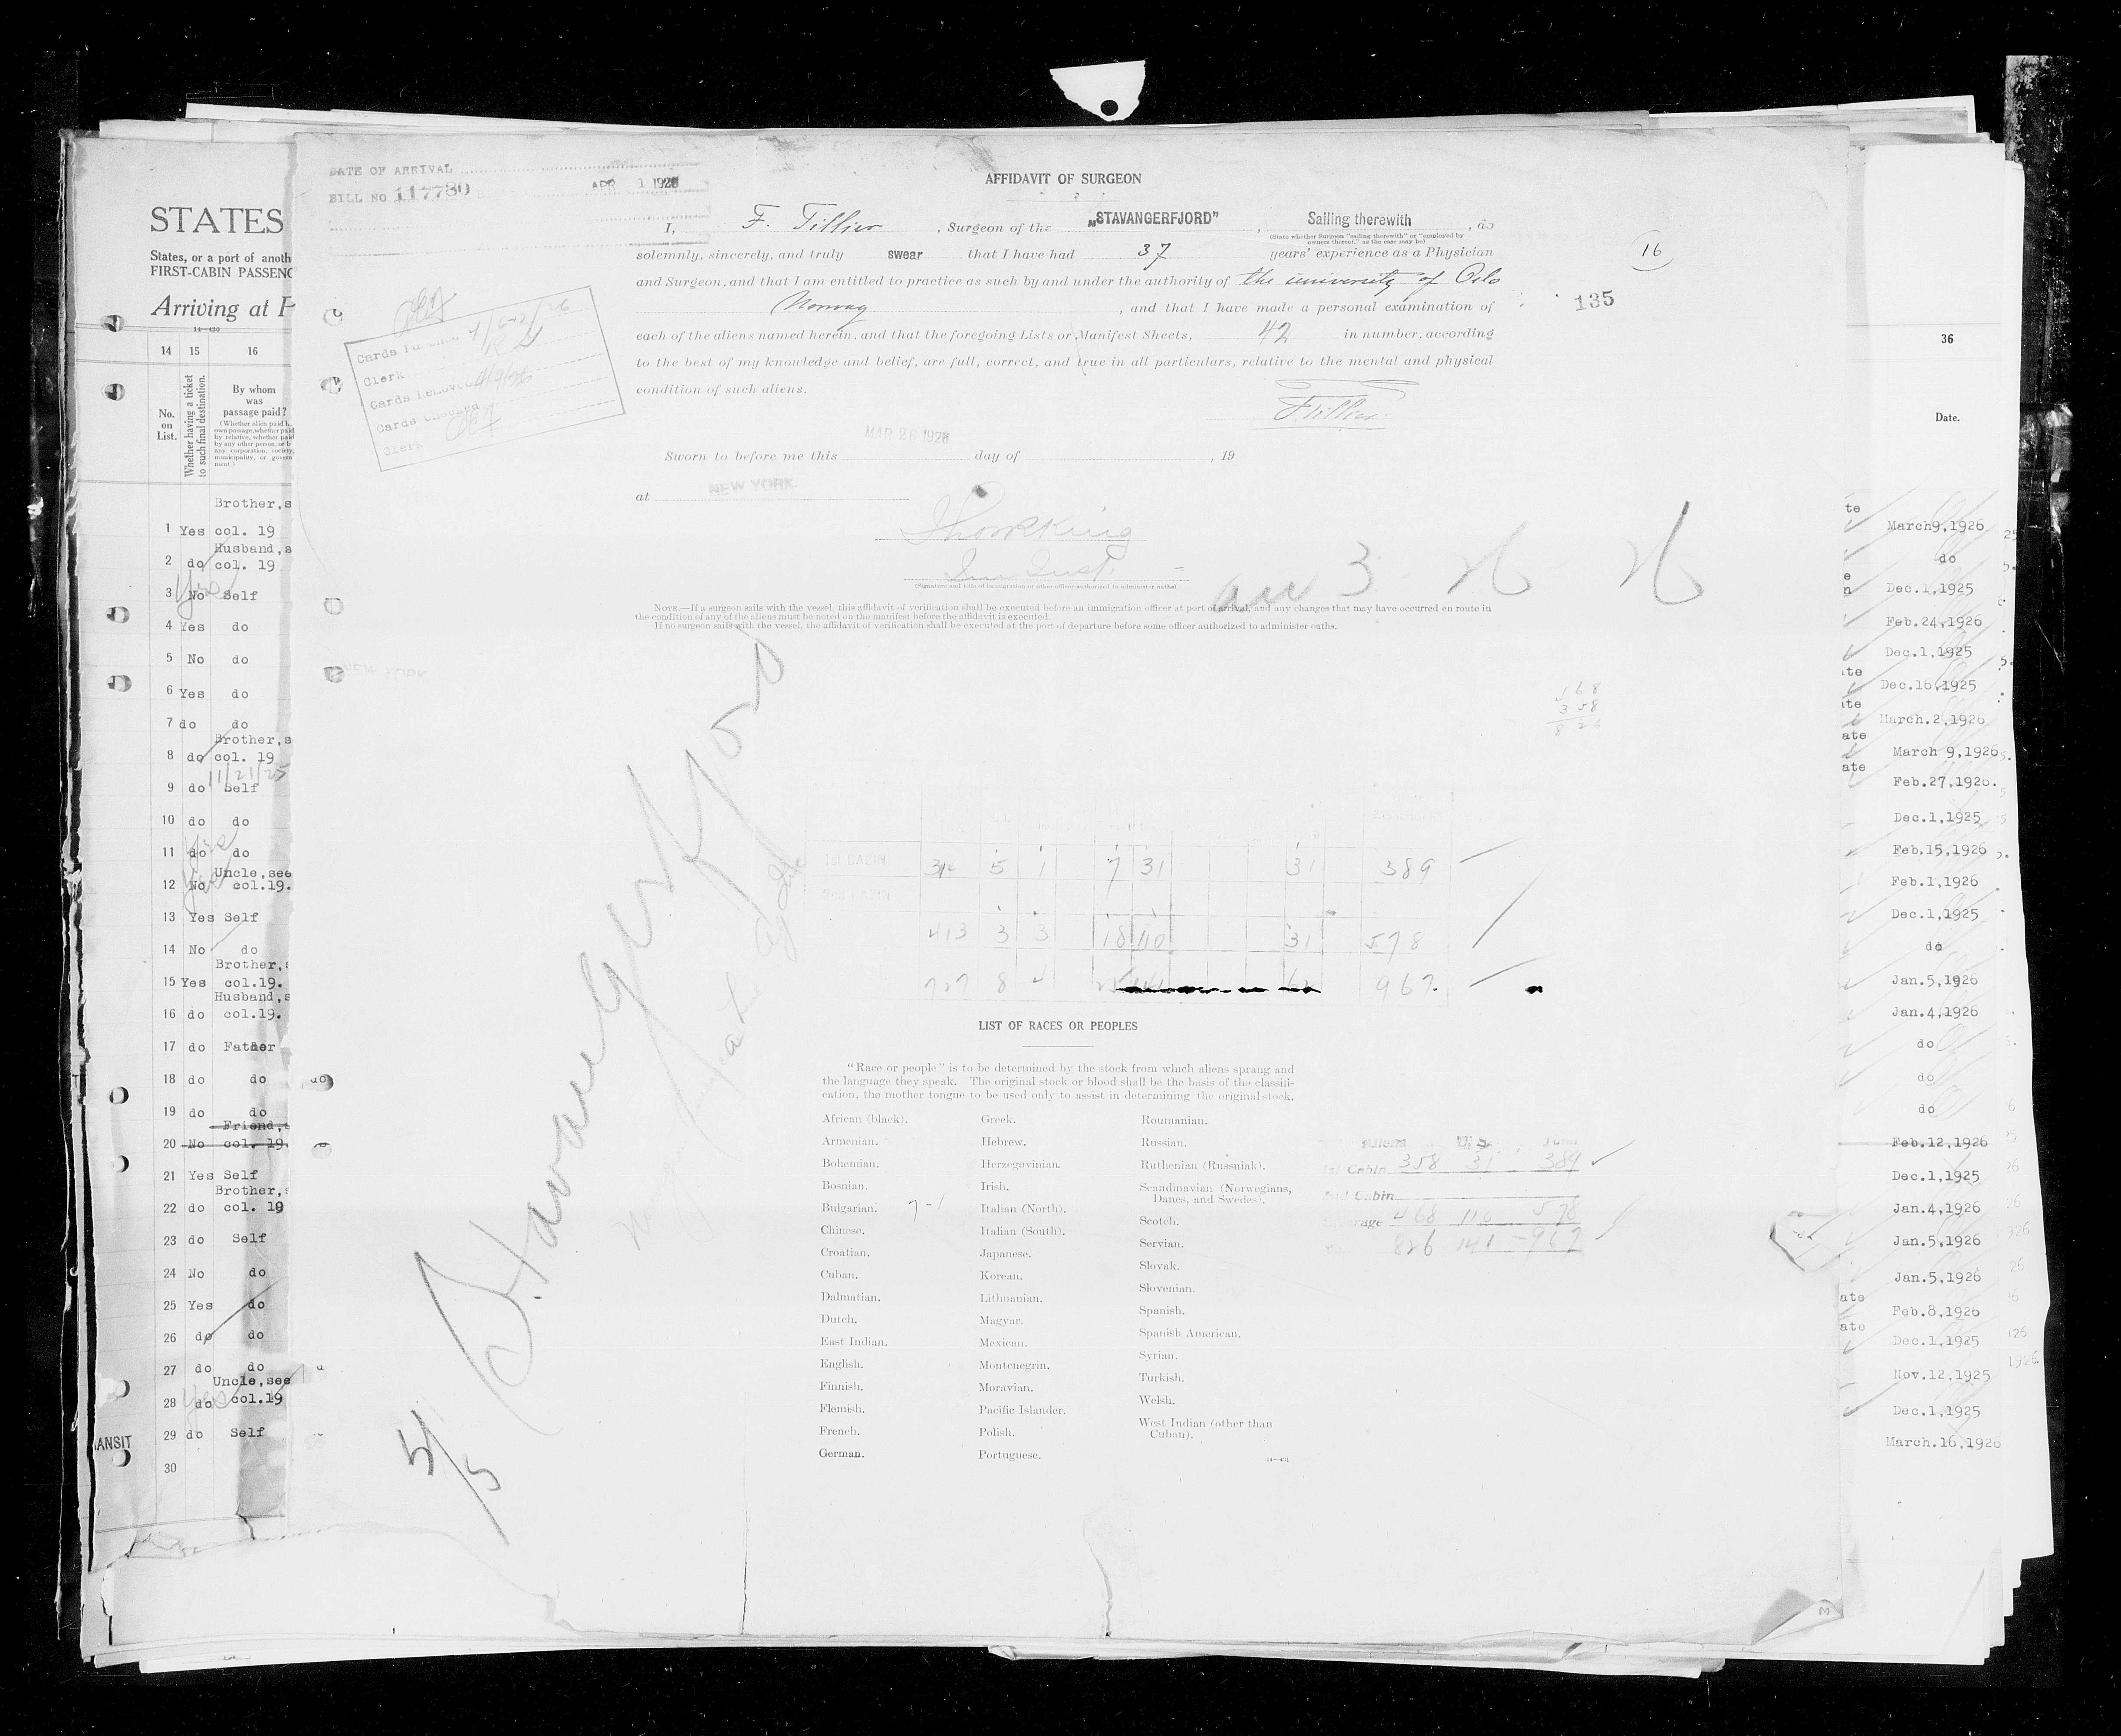 DATE OF ARRIVAL
BILL NO 117780
APR 1 1926
AFFIDAVIT OF SURGEON
I, F. Tillier, Surgeon of the „STAVANGERFJORD”, Sailing therewith, do
(State whether Surgeon "sailing therewith" or "employed by
owners thereof," as the case may be)
solemnly, sincerely, and truly swear that I have had 37 years' experience as a Physician
and Surgeon, and that I am entitled to practice as such by and under the authority of the university of Oslo
Norway, and that I have made a personal examination of
each of the aliens named herein, and that the foregoing Lists or Manifest Sheets, 42 in number, according
to the best of my knowledge and belief, are full, correct, and true in all particulars, relative to the mental and physical
condition of such aliens.
FTillier
16
135
Clerk
Cards Removed
Cards Checked
Clerk
MAR 26 1926
Sworn to before me this day of , 19
at NEW YORK
(Signature and title of immigration or other officer authorized to administer oaths)
NOTE.—If a surgeon sails with the vessel, this affidavit of verification shall be executed before an immigration officer at port of arrival, and any changes that may have occurred en route in
the condition of any of the aliens must be noted on the manifest before the affidavit is executed.
If no surgeon sails with the vessel, the affidavit of verification shall be executed at the port of departure before some officer authorized to administer oaths.
NEW YORK
Stavangerfjord
5/5
168
358
826
1st CABIN 5 1 7 31 31 389
2nd CABIN
413 3 3 18 110 31 578
727 8 4 967
LIST OF RACES OR PEOPLES
"Race or people" is to be determined by the stock from which aliens sprang and
the language they speak. The original stock or blood shall be the basis of the classifi-
cation, the mother tongue to be used only to assist in determining the original stock.
African (black).
Armenian.
Bohemian.
Bosnian.
Bulgarian.
7-1
Chinese.
Croatian.
Cuban.
Dalmatian.
Dutch.
East Indian.
English.
Finnish.
Flemish.
French.
German.
Greek.
Hebrew.
Herzegovinian.
Irish.
Italian (North).
Italian (South).
Japanese.
Korean.
Lithuanian.
Magyar.
Mexican.
Montenegrin.
Moravian.
Pacific Islander.
Polish.
Portuguese.
Roumanian.
Russian.
Ruthenian (Russniak).
Scandinavian (Norwegians,
Danes, and Swedes).
Scotch.
Servian.
Slovak.
Slovenian.
Spanish.
Spanish American.
Syrian.
Turkish.
Welsh.
West Indian (other than
Cuban).
Aliens U.S. Total
1st Cabin 358 31 389
2nd Cabin
468 110 578
826 141 967
STATES
States, or a port of anoth
FIRST-CABIN PASSENG
Arriving at P
14—430
14 15 16
No.
on
List.
Whether having a ticket
to such final destination.
By whom
was
passage paid?
Brother,s
1 Yes col. 19
Husband,s
2 do col. 19
3 No Self
4 Yes do
5 No do
6 Yes do
7 do do
Brother,s
8 do col. 19
11/21/25
9 do Self
10 do do
11 do do
Uncle,see
12 No col.19.
13 Yes Self
14 No do
Brother,
15 Yes col.19.
Husband,s
16 do col.19.
17 do Father
18 do do
19 do do
Friend,
20 No col. 19.
21 Yes Self
Brother,
22 do col. 19
23 do Self
24 No do
25 Yes do
26 do do
27 do do
Uncle,see
28 do col.19
29 do Self
30
ANSIT
36
Date.
March9,1926
do
Dec.1,1925
Feb.24,1926
Dec.1,1925
Dec.16,1925
March.2,1926
March 9,1926
Feb.27,1926.
Dec.1,1925
Feb.15,1926
Feb.1,1926
Dec.1,1925
do
Jan.5,1926
Jan.4,1926
do
do
do
Feb.12,1926
Dec.1,1925
Jan.4,1926
Jan.5,1926
Jan.5,1926
Feb.8,1926
Dec.1,1925
Nov.12,1925
Dec.1,1925
March.16,1926